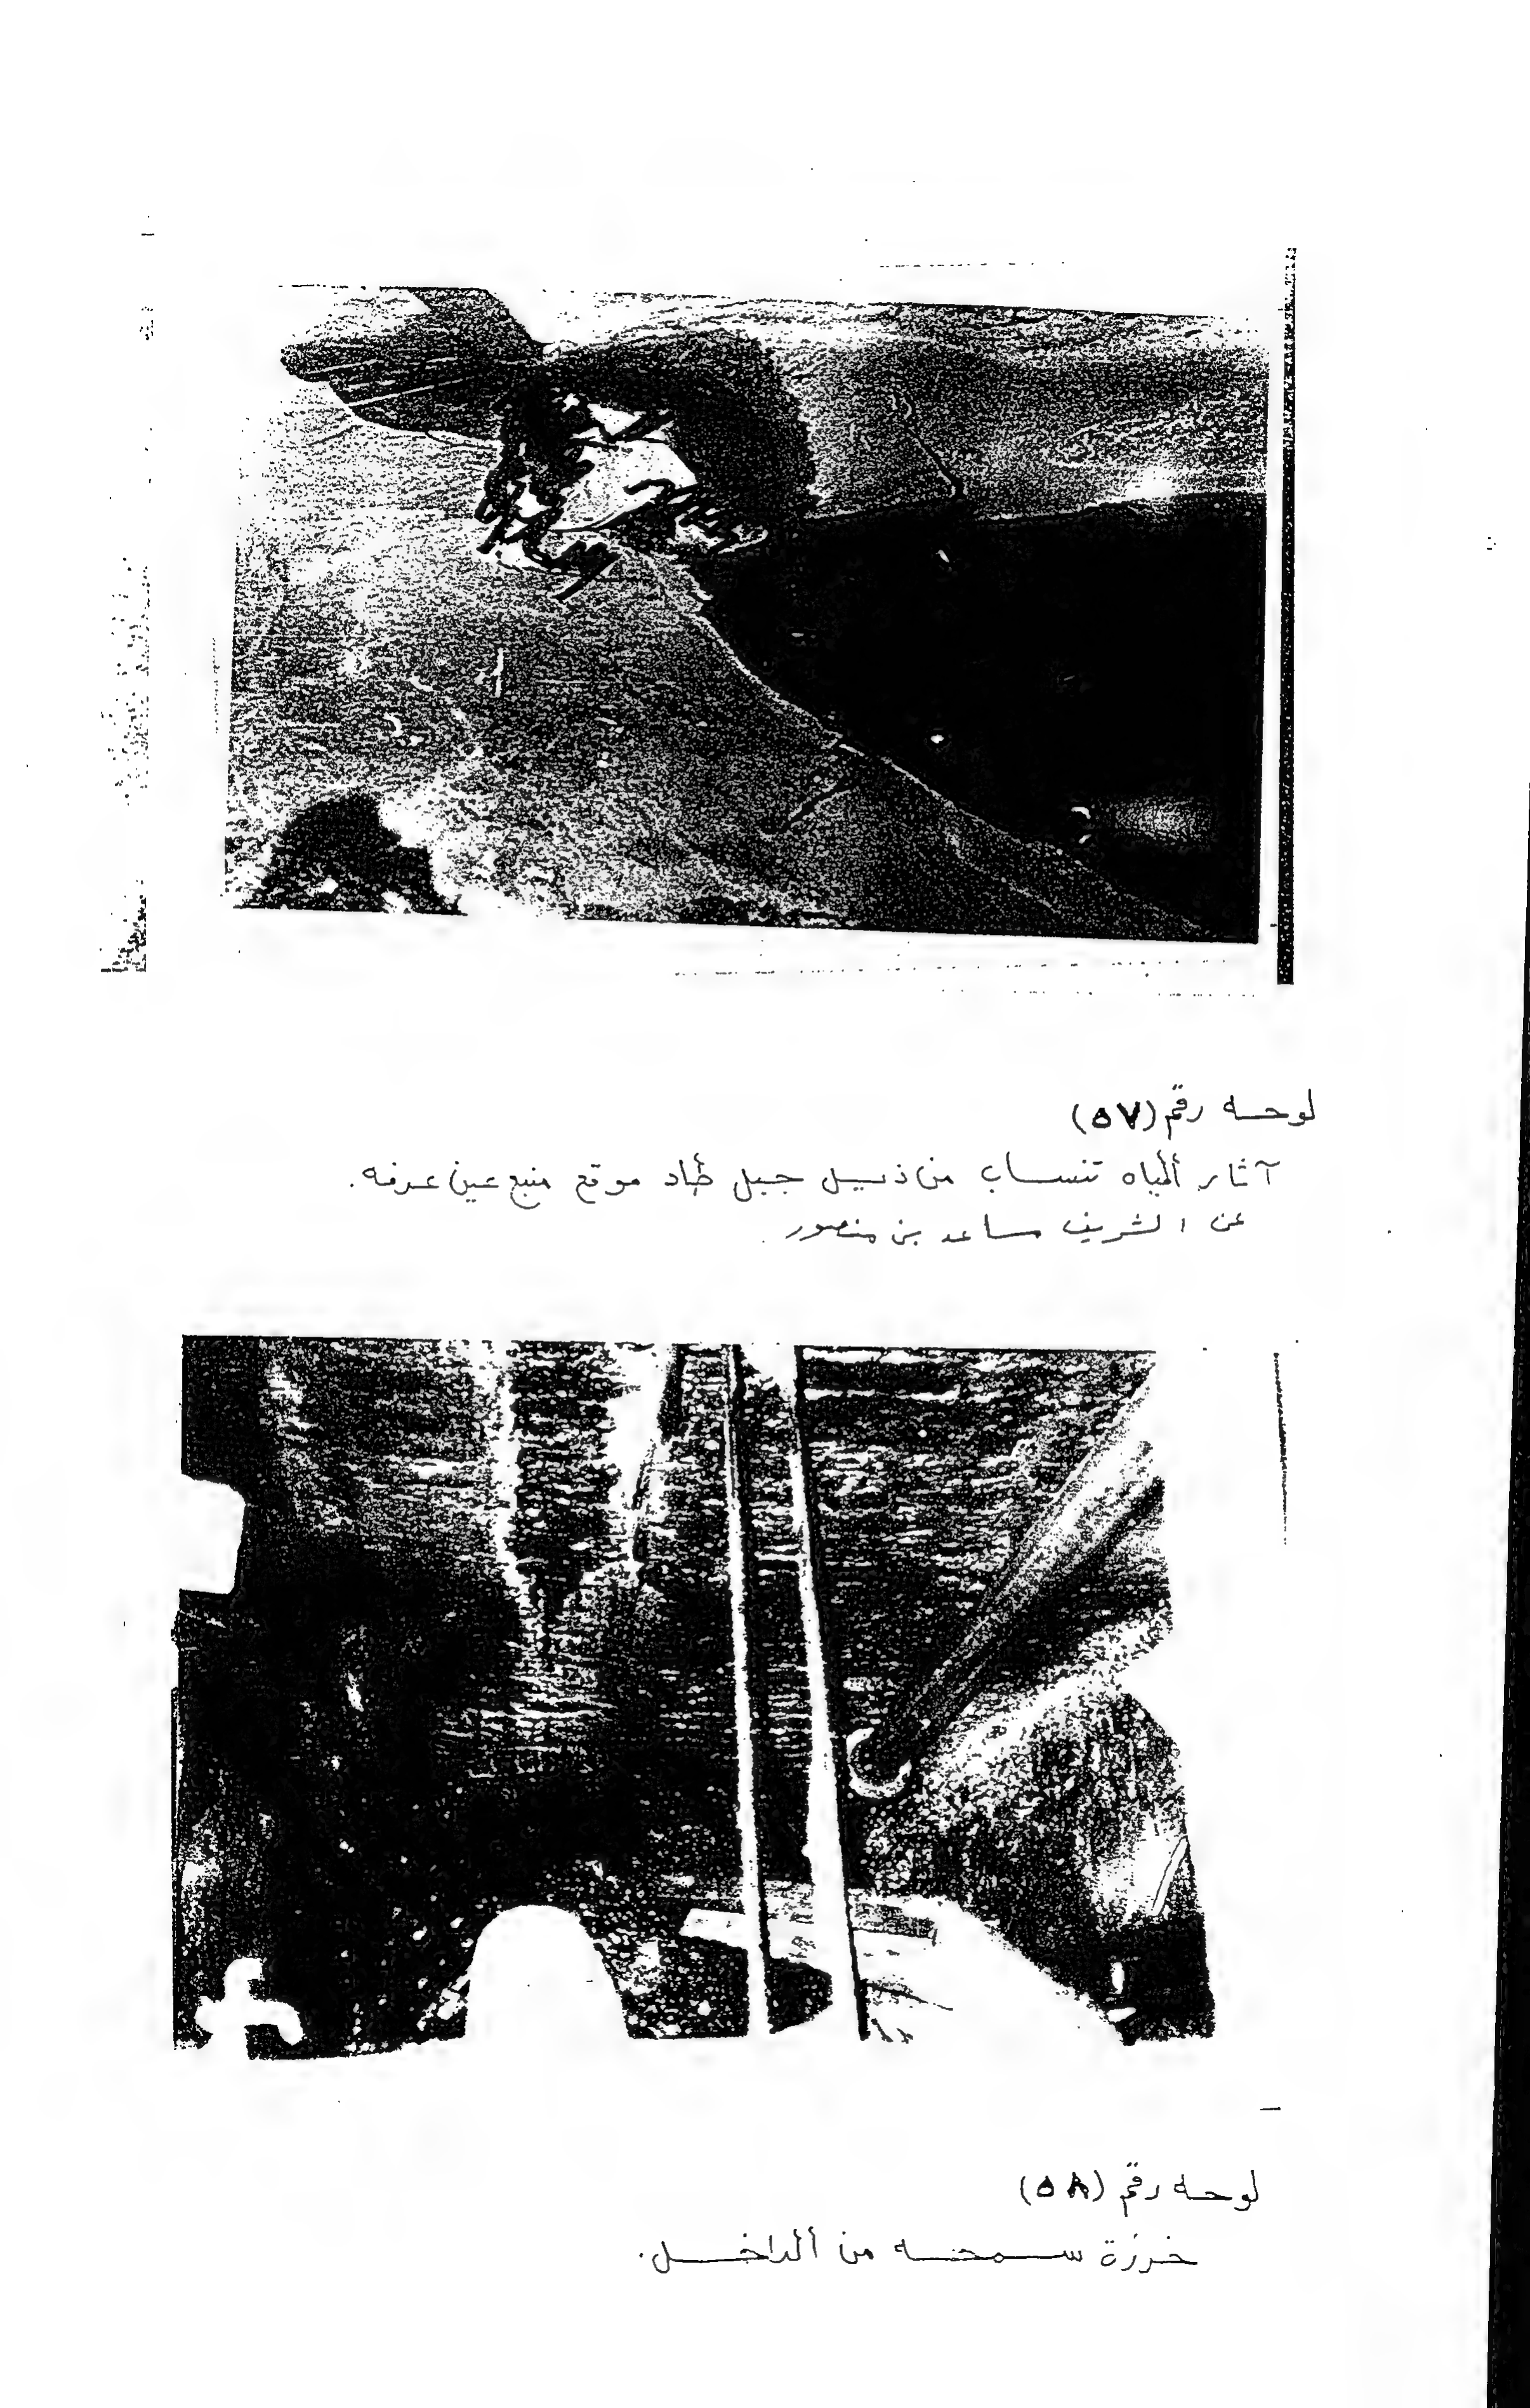 لوحه رقم (٥٧)
آثار ألمياه تنساب من ذيل جبل طاد موقع منبع عين عرفه.
عن الشريف مساعد بن منصور.
لوحه رقم (٥٨)
خرزة سمحه من ألداخل.